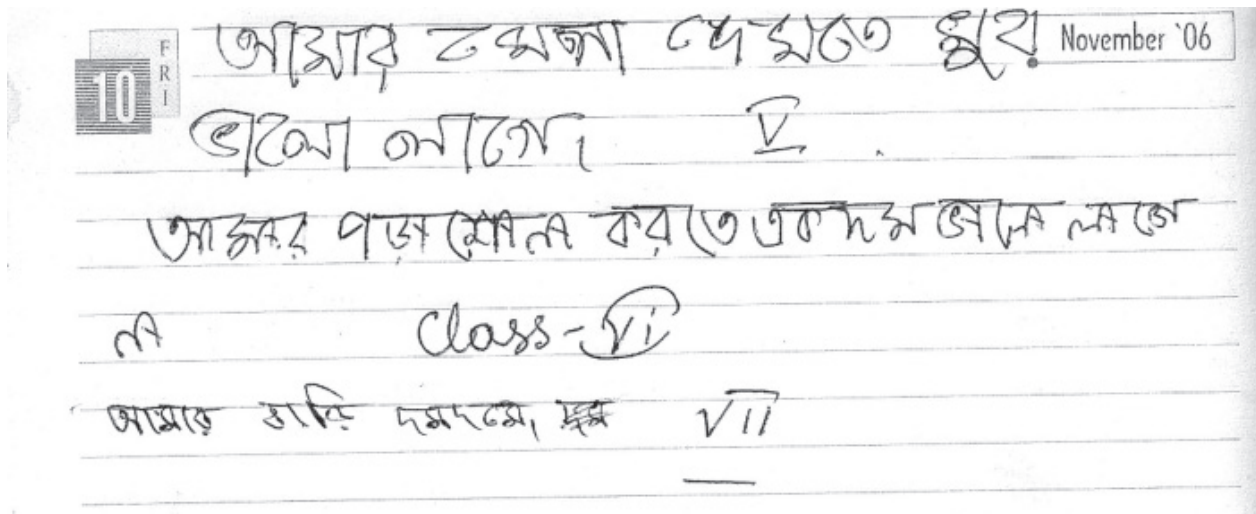 FRI
10
November '06
আমার খেলা দেখতে খুব
ভালো লাগে। V
আমার পড়াশোনা করতে একদম ভালো লাগে
না Class-VI
আমার বাড়ি দমদমে। VII